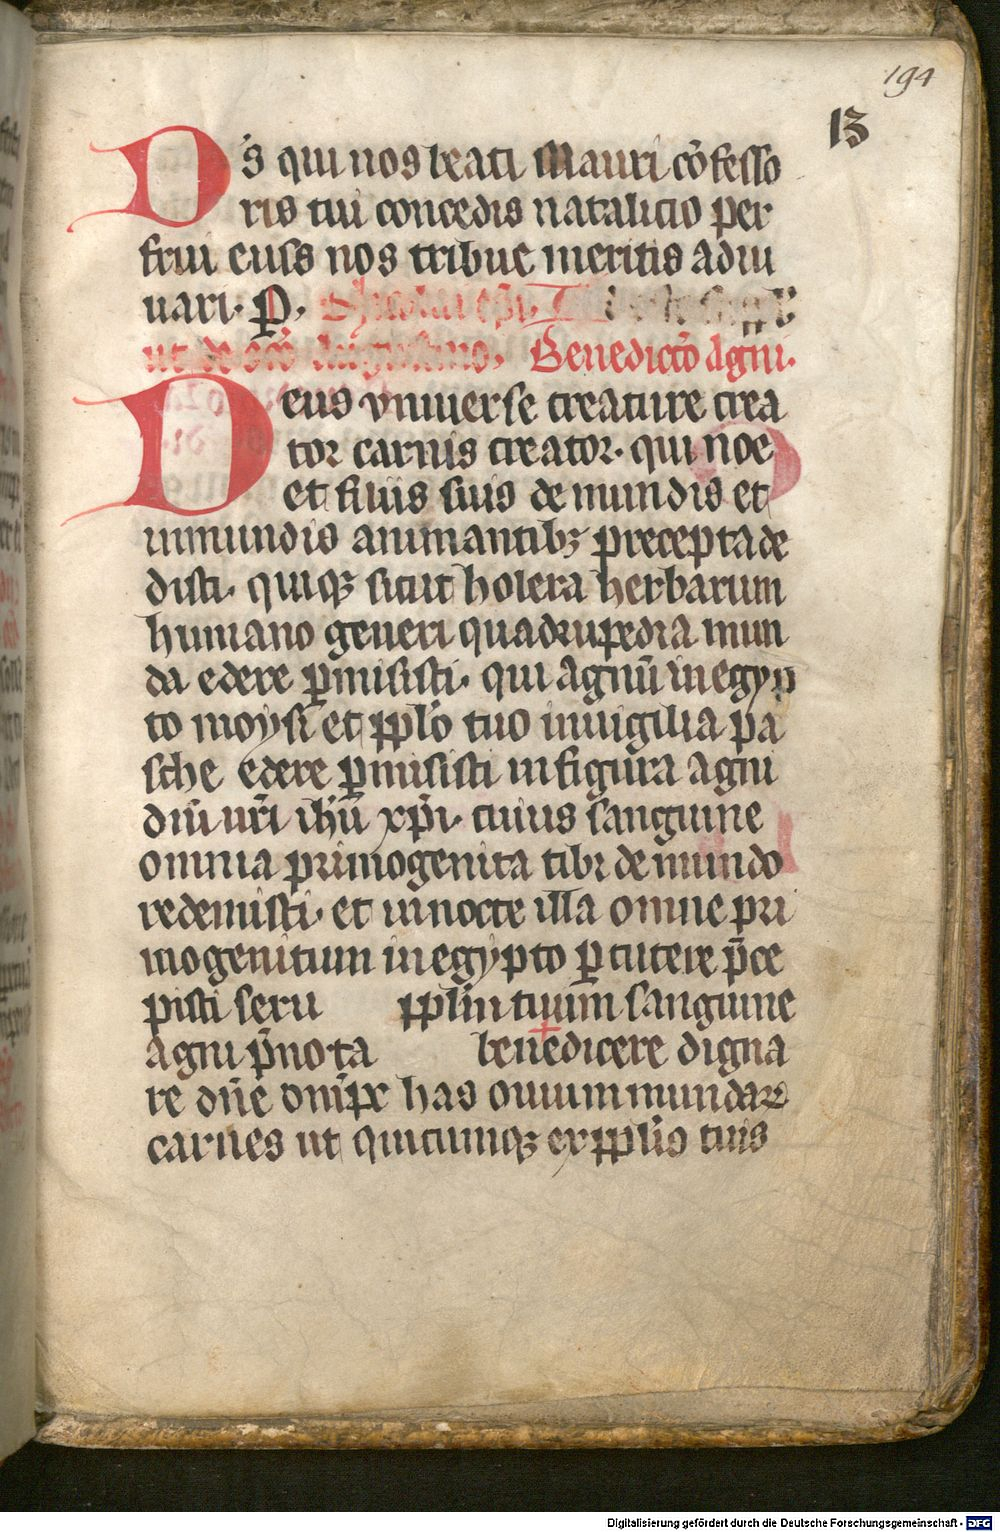 194
13
Ds̄ qui nos beati Mauri cōfesso
ris tui concedis natalicio per
frui eius nos tribue meritis adiu
uari. P̲.
ut de Benedictō Agni.
Deus vniuerse creature crea
tor carnis creator. qui noe
et filiis suis de mundis et
inmundis animantibꝫ precepta de
disti. quiqꝫ sicut holera herbarum
humano generi quadrupedia mun
da edere ꝑmisisti. qui agnū in egyp
to moysi et pplō tuo in uigilia pa
sche edere ꝑmisisti in figura agni
dn̄i nr̄i ih̄u xp̄i. cuius sanguine
omnia primogenita tibi de mundo
redemisti. et in nocte illa omne pri
mogenitum in egypto ꝑcutere p̄ce
pisti seru pplm̄ tuum sanguine
agni p̄nota benedicere digna
re dn̄e om̄px has ouium mundar
carnes ut quicumqꝫ ex pplīs tuis
Digitalisierung gefördert durch die Deutsche Forschungsgemeinschaft - DFG